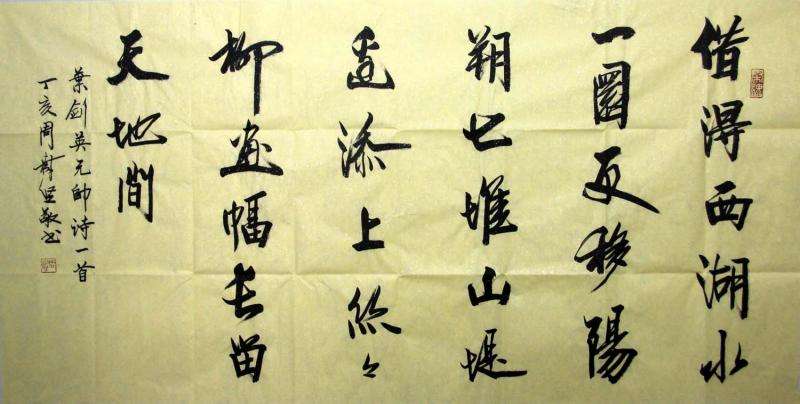 借得西湖水
一圜更移陽
朔七堆山堤
邊添上絲々
柳畫幅長留
天地間
葉劍英元帥诗一首
丁亥周敬书